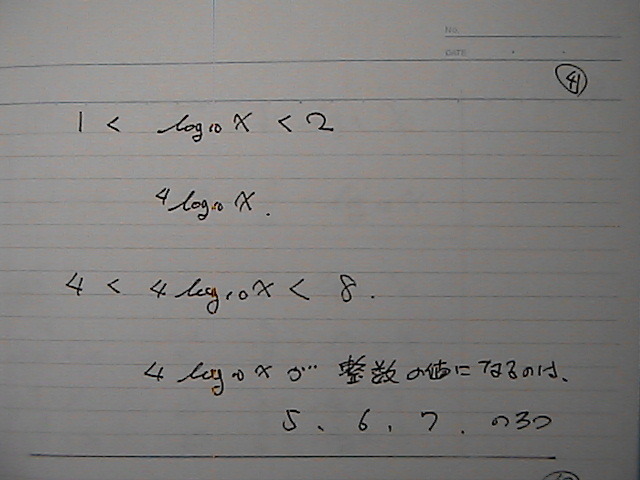 No.
DATE
41
1 < log₁₀ x < 2
4 log₁₀ x.
4 < 4 log₁₀ x < 8.
4 log₁₀ x が 整数の値になるのは、
5、6、7. の3つ